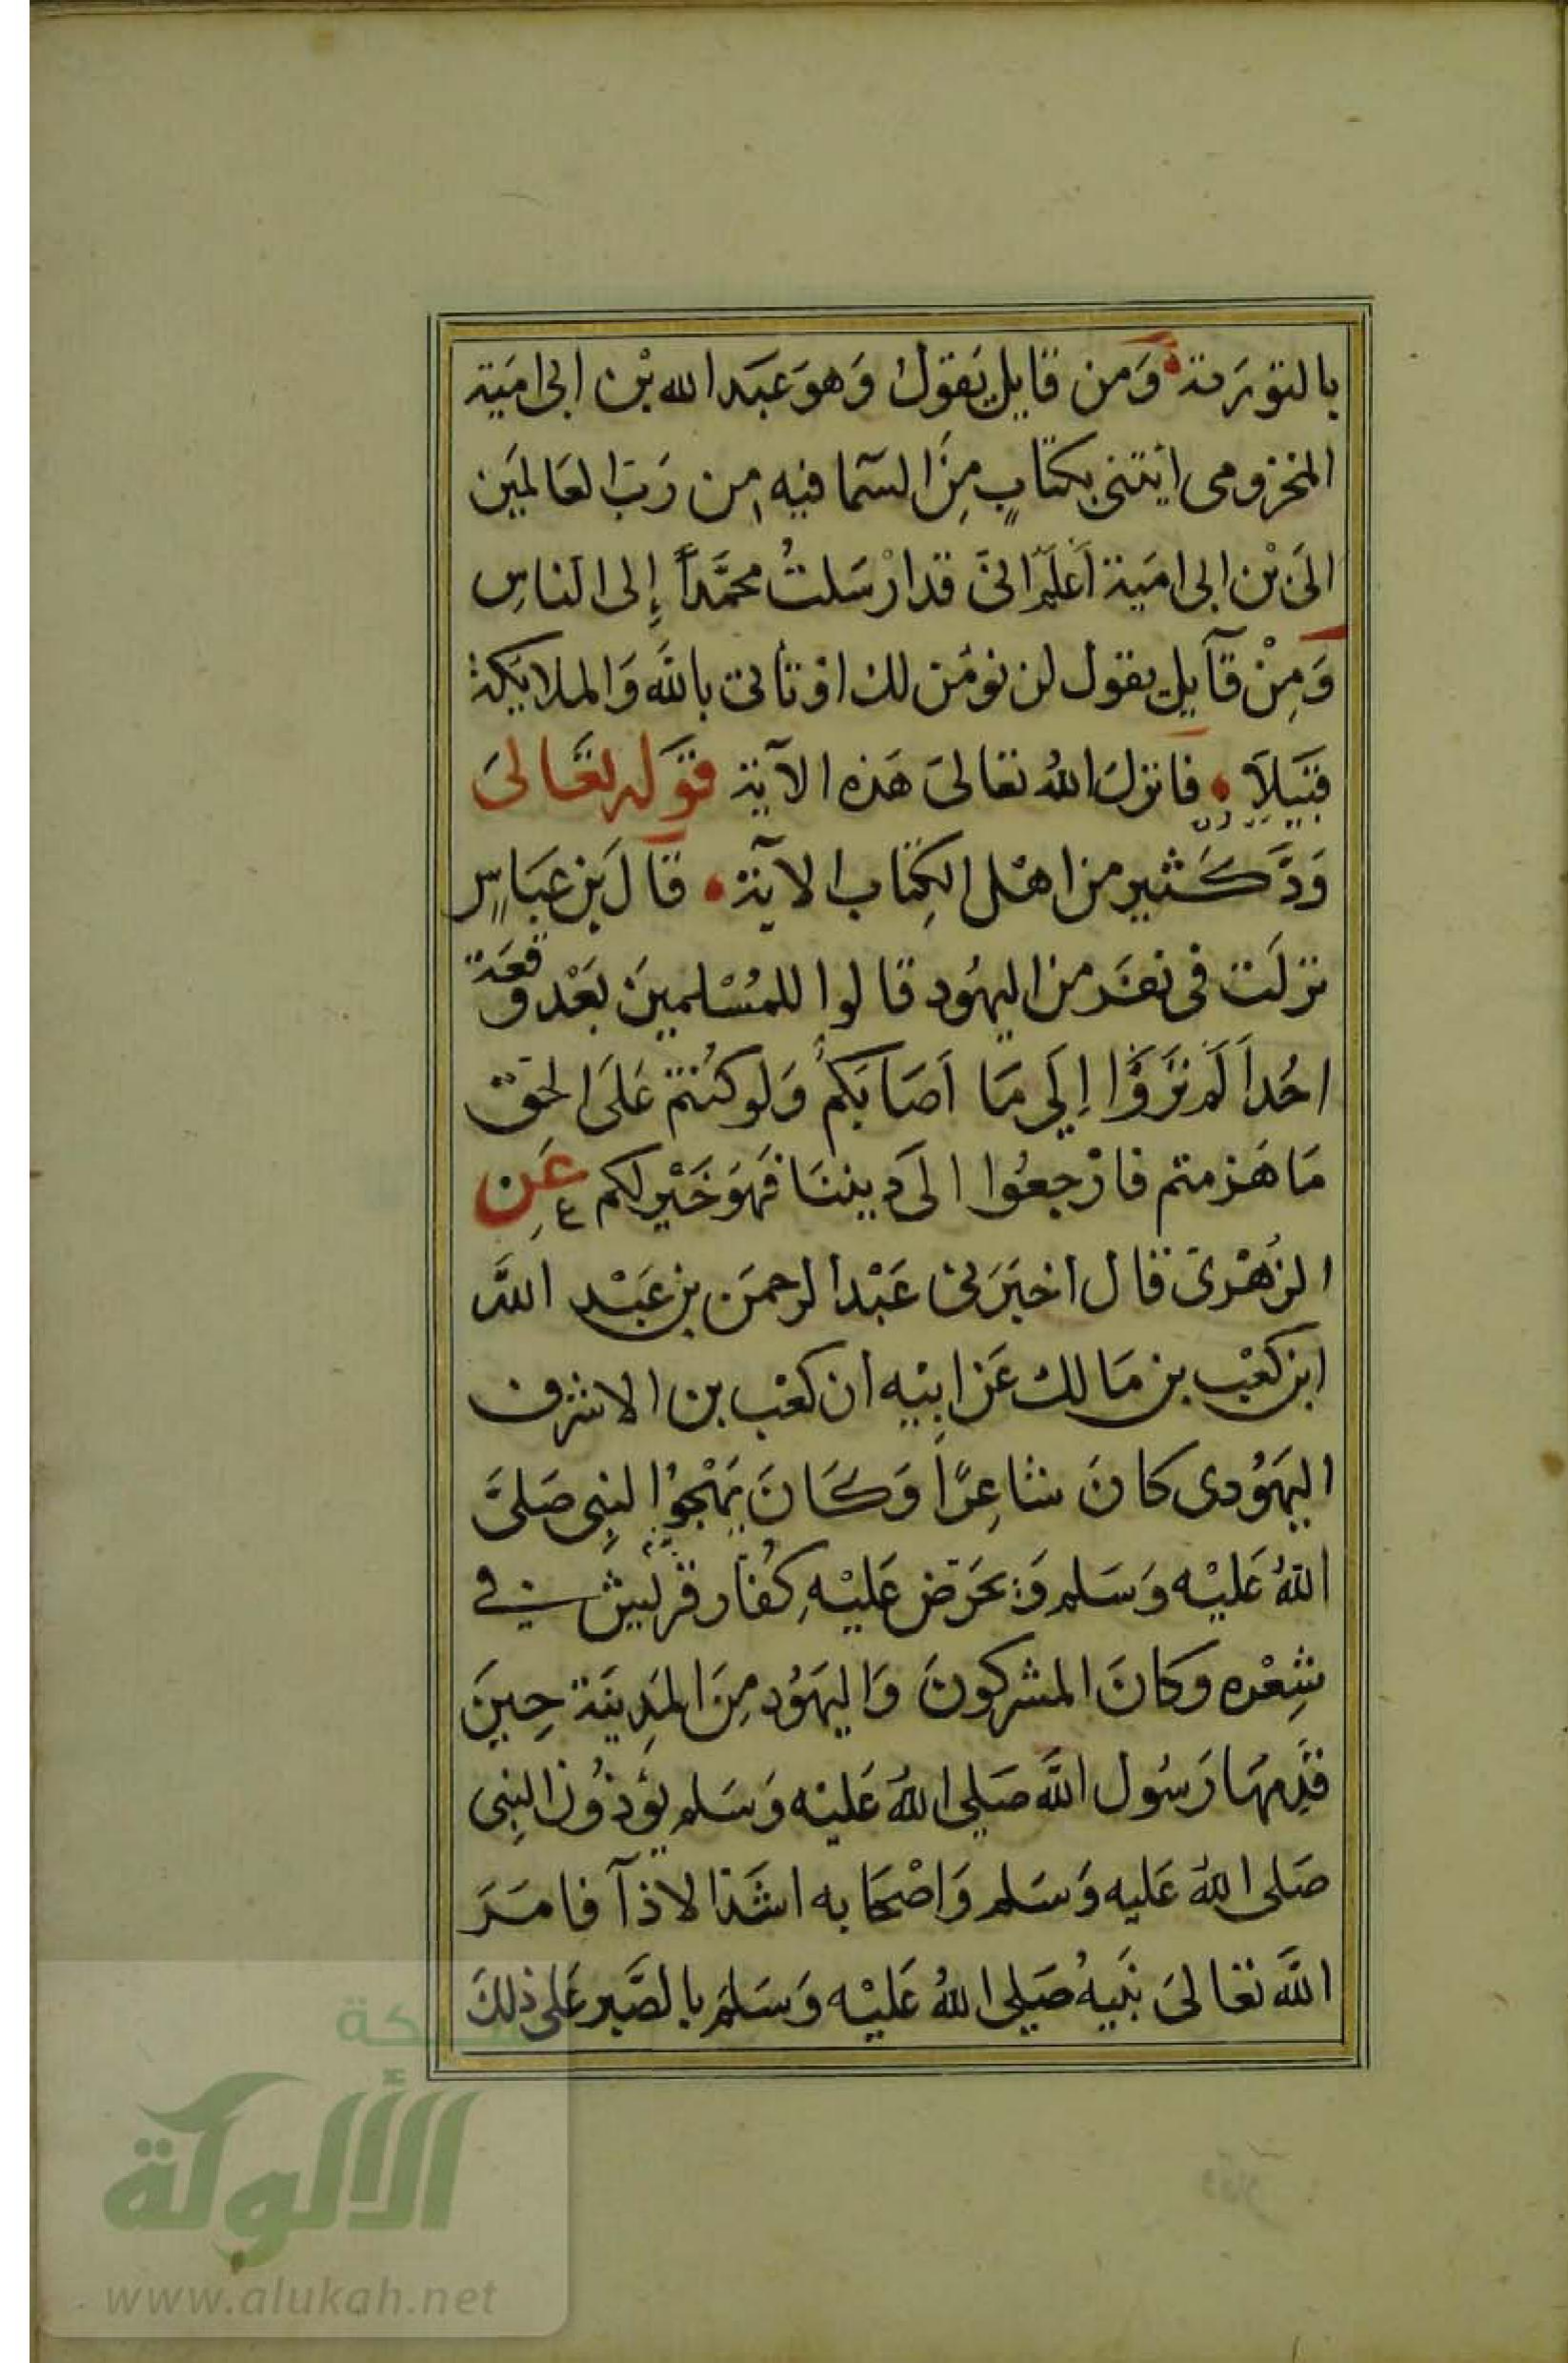 بالتورىة وَمن قايل يَقول وَهوَ عبَد الله بْن ابى امَية
المخزومى ايتنى بكتابٍ مِنَ السَمآ فيه من رَبّ العَالمَين
الىَ بْن ابى امَية اَعلَم انىّ قد ارْسَلتُ محمَّداً إلى الناسِ
وَمِنْ قآيل يقول لن نومَن لك اوْ تأتىَ بالله وَالملايكة
قبَيلاَ فانزلَ اللهُ تعالىَ هَذه الآية قوَله تعَّالىَ
وَدَّ كَثير من اهْل الكِتاب الاية قآلَ بن عبَاسٍ
نزلَت فى نفَر من اليهُود قالوا للمُسْلمينَ بَعْد وقعَة
احُداَ لَم ترَوَّا إلَي مَا اَصَابَكمُ وَلو كنُتم عَلىَ الحق
مَا هَزمتم فارْجعُوا الىَ ديننَا فهَوَ خَيْر لكم عَن
الزهُرْى قال اخبَرَنى عَبْد الرحمَن بن عَبْد الله
ابن كَعْب بن مَالك عَن ابيْه ان كعْب بن الاشرف
اليهَوُدى كانَ شاعِرًا وَكَانَ يَهْجوُا النبِى صَلىَ
اللهُ عَليْه وَسَلم وَيحَرّض عَليْهِ كفُار قريَش في
شِعْره وكانَ المشركونَ وَاليهَوُد مِنَ المدَينة حِينَ
قدِمهَا رَسُول الله صَلى اللهُ عَليْه وَسَلم يؤذوُن النبِى
صَلى اللهُ عَليه وَسَلم وَاصْحَابه اشَد الاذآ فامَرَ
اللهَ تعَالىَ نبَيهُ صَلي اللهُ عَليْه وَسَلمَ بالصَّبر عَلى ذلكَ
شبكة
الألوكة
www.alukah.net